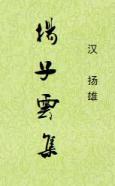 汉 扬雄
揚子雲集